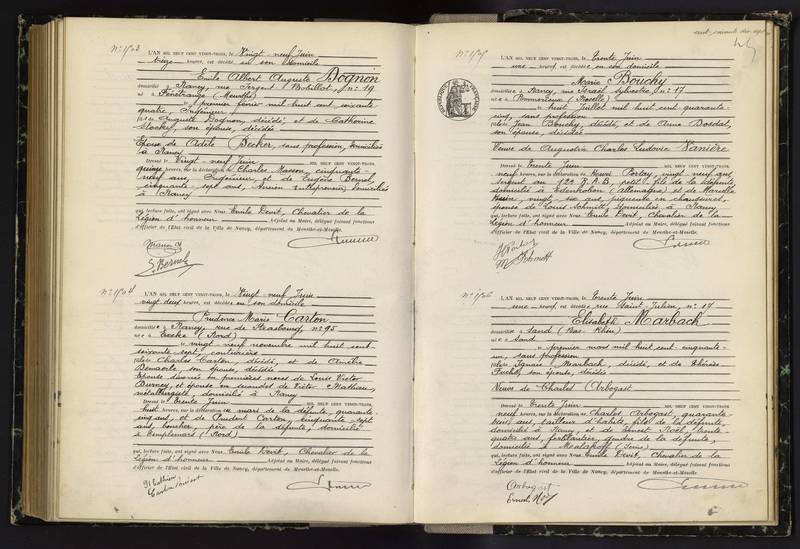 N° 1503
L'AN MIL NEUF CENT VINGT-TROIS, le Vingt-neuf Juin
treize heures, est décédé en son domicile
Emile Albert Auguste Dognon
domicilié à Nancy, rue Sergent Blandan, n° 19
né à Fénétrange (Meurthe)
le premier février mil huit cent soixante-
quatre, Ingénieur
fils de Auguste Dognon, décédé, et de Catherine
son épouse, décédée
Epoux de Adèle Becker, sans profession, domiciliée
à Nancy
Dressé le Vingt-neuf Juin MIL NEUF CENT VINGT-TROIS,
quinze heures, sur la déclaration de Charles Masson, cinquante-
neuf ans, Ingénieur, et de Eugène Bernel,
cinquante-sept ans, Ancien entrepreneur, domiciliés
à Nancy
qui, lecture faite, ont signé avec Nous Emile Devit, Chevalier de la
Légion d'honneur Adjoint au Maire, délégué faisant fonctions
d'officier de l'Etat civil de la Ville de Nancy, département de Meurthe-et-Moselle.
N° 1504
L'AN MIL NEUF CENT VINGT-TROIS, le Vingt neuf Juin
vingt deux heures, est décédée en son domicile
Prudence Marie Carton
domiciliée à Nancy, rue de Strasbourg, n° 95
née à (Nord)
le vingt-neuf novembre mil huit cent
soixante sept, couturière
fille de Charles Carton, décédé, et de Amélie
son épouse, décédée
Epouse divorcée en premières noces de Louis Victor
Burney, et épouse en secondes de Victor Mathieu
métallurgiste, domicilié à Nancy
Dressé le Trente Juin MIL NEUF CENT VINGT-TROIS,
huit heures, sur la déclaration du mari de la défunte, quarante-
cinq ans, et de Carton, cinquante sept
ans, boucher, frère de la défunte, domicilié
à Templemars (Nord)
qui, lecture faite, ont signé avec Nous Emile Devit, Chevalier de la
Légion d'honneur Adjoint au Maire, délégué faisant fonctions
d'officier de l'Etat civil de la Ville de Nancy, département de Meurthe-et-Moselle.
N° 1505
L'AN MIL NEUF CENT VINGT-TROIS, le Trente Juin
une heure, est décédée en son domicile
Marie Bouchy
domiciliée à Nancy, rue Israël Sylvestre, n° 17
née à (Moselle)
le huit Juillet mil huit cent quarante-
cinq, sans profession
fille de Jean Bouchy, décédé, et de Anne
son épouse, décédée
Veuve de Augustin Charles Ludovic Vanière
Dressé le Trente Juin MIL NEUF CENT VINGT-TROIS,
neuf heures, sur la déclaration de Henri vingt neuf ans,
sergent au petit-fils de la défunte
domicilié à Edenkoben (Allemagne) et de Marcelle
vingt-six ans,
épouse de Louis Schmitt, domiciliée à Nancy
qui, lecture faite, ont signé avec Nous Emile Devit, Chevalier de la
Légion d'honneur Adjoint au Maire, délégué faisant fonctions
d'officier de l'Etat civil de la Ville de Nancy, département de Meurthe-et-Moselle.
N° 1506
L'AN MIL NEUF CENT VINGT-TROIS, le Trente Juin
une heure, est décédée rue Saint-Julien, n° 17
Elisabeth Marbach
domiciliée à Sand (Bas-Rhin)
née à Sand
le premier mars mil huit cent cinquante-
sans profession
fille de Ignace Marbach, décédé, et de Thérèse
son épouse, décédée
Veuve de Charles Arbogast
Dressé le Trente Juin MIL NEUF CENT VINGT-TROIS,
neuf heures, sur la déclaration de Charles Arbogast, quarante-
trois ans, tailleur d'habits, fils de la défunte,
domicilié à Nancy, et de Ernest Noël, trente-
quatre ans, ferblantier, gendre de la défunte,
domicilié à Malakoff (Seine)
qui, lecture faite, ont signé avec Nous Emile Devit, Chevalier de la
Légion d'honneur Adjoint au Maire, délégué faisant fonctions
d'officier de l'Etat civil de la Ville de Nancy, département de Meurthe-et-Moselle.
Arbogast